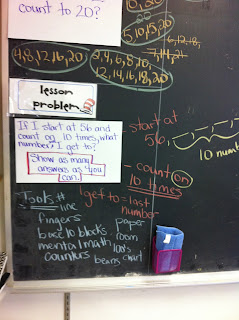 count to 20?
5,10,15,20
4,8,12,16,20
2,4,6,8,10,
12,14,16,18,20
lesson
problem
If I start at 56 and
count on 10 times, what
number I get to?
Show as many
answers as you
can.
start at
56,
10 num
- count on
10 times
I get to = last
number
Tools #
line
fingers
base 10 blocks
mental math
counters
beans
paper
room
100's
chart